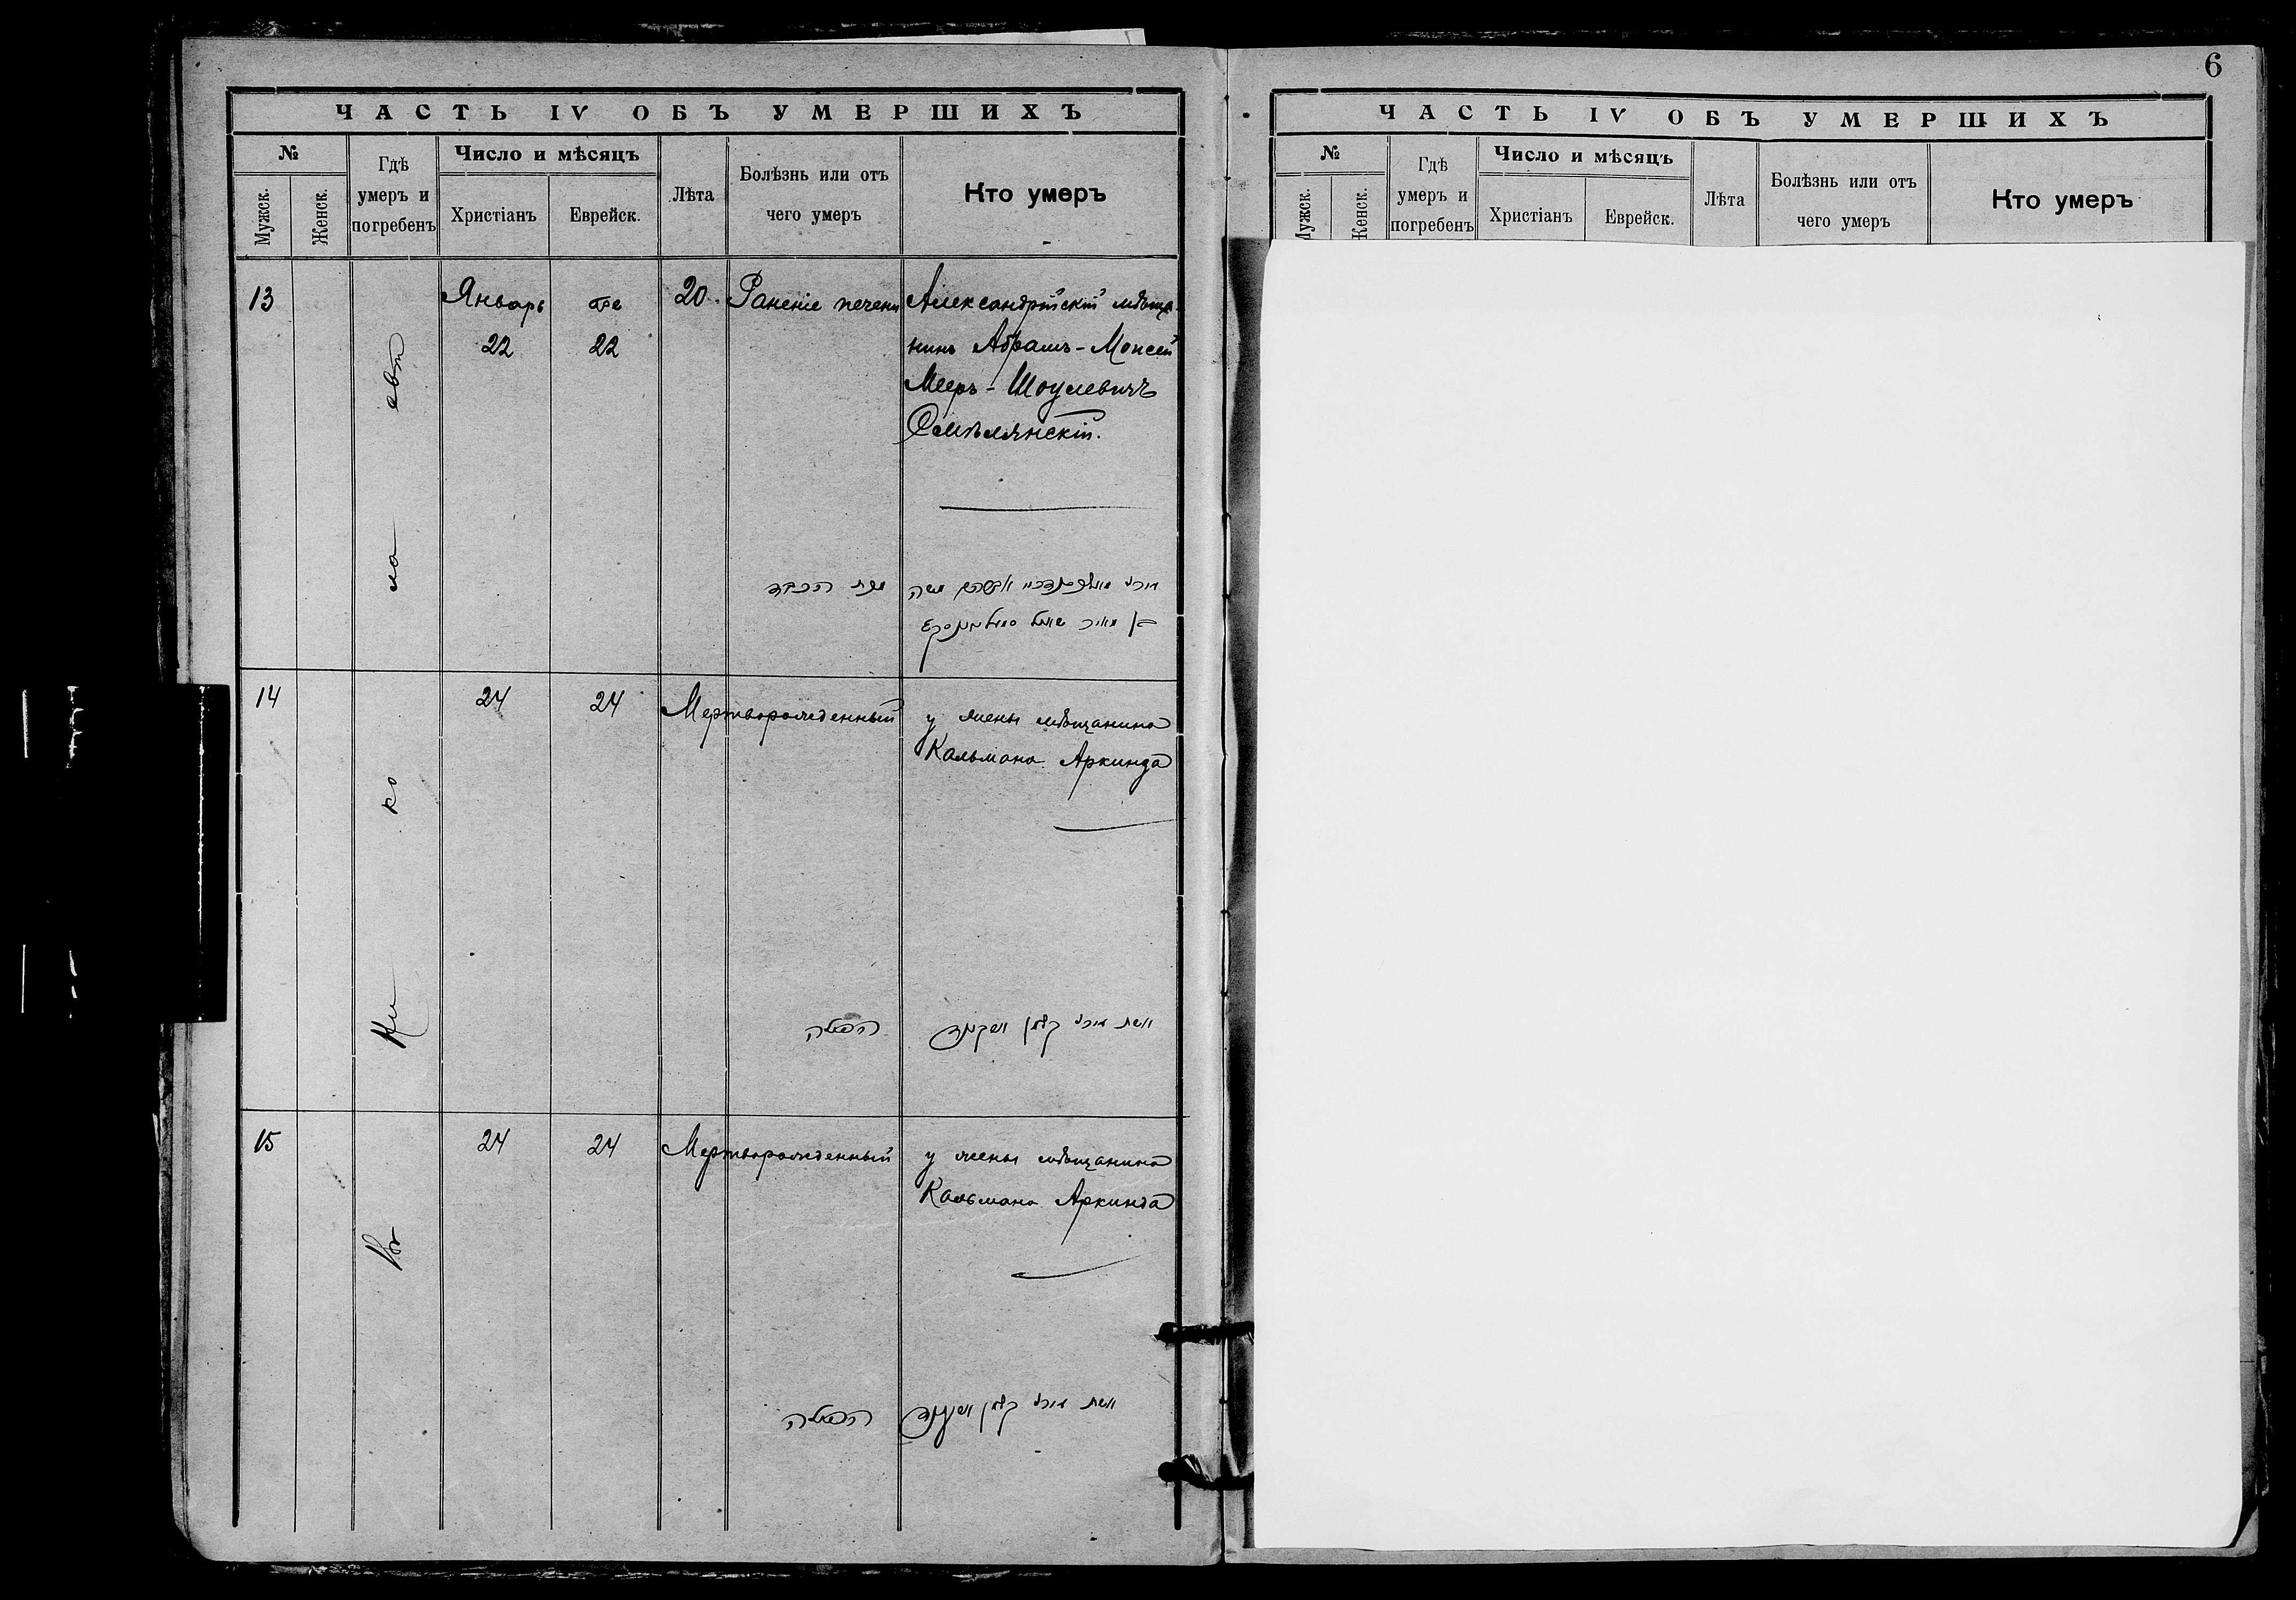 6
ЧАСТЬ IV ОБЪ УМЕРШИХЪ
№
Мужск.
Женск.
Гдѣ умеръ и погребенъ
Число и мѣсяцъ
Христіанъ
Еврейск.
Лѣта
Болѣзнь или отъ чего умеръ
Кто умеръ
Въ Николаевѣ
13
Январь
22
22
20
Раненіе печени
Александрійскій мѣща-
нинъ Абрамъ-Моисей
Мееръ-Шоулевичъ
Смѣлянскій.
הכבד
משה
בן מאיר שאול
14
24
24
Мертворожденный
у жены мѣщанина
Кальмана Аркинда
הפאלה
קלמן
15
24
24
Мертворожденный
у жены мѣщанина
Кальмана Аркинда
הפאלה
קלמן
ЧАСТЬ IV ОБЪ УМЕРШИХЪ
№
Мужск.
Женск.
Гдѣ умеръ и погребенъ
Число и мѣсяцъ
Христіанъ
Еврейск.
Лѣта
Болѣзнь или отъ чего умеръ
Кто умеръ